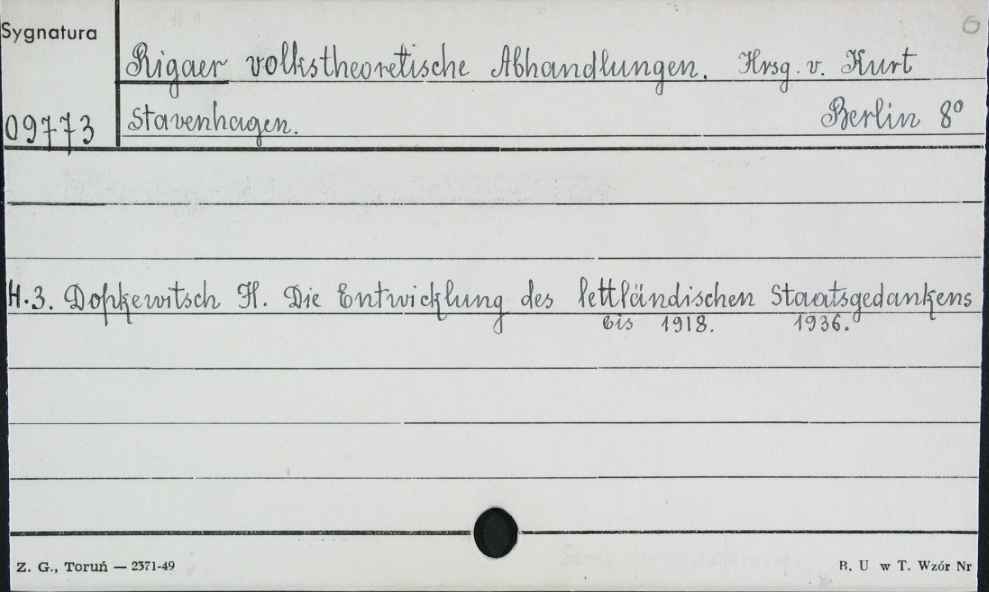 6
Sygnatura
Rigaer volkstheoretische Abhandlungen. Hrsg. v. Kurt
09773 Stavenhagen. Berlin 8º
H.3. Dopkewitsch H. Die Entwicklung des lettländischen Staatsgedankens
bis 1918. 1936.
Z. G., Toruń — 2371-49 B. U w T. Wzór Nr